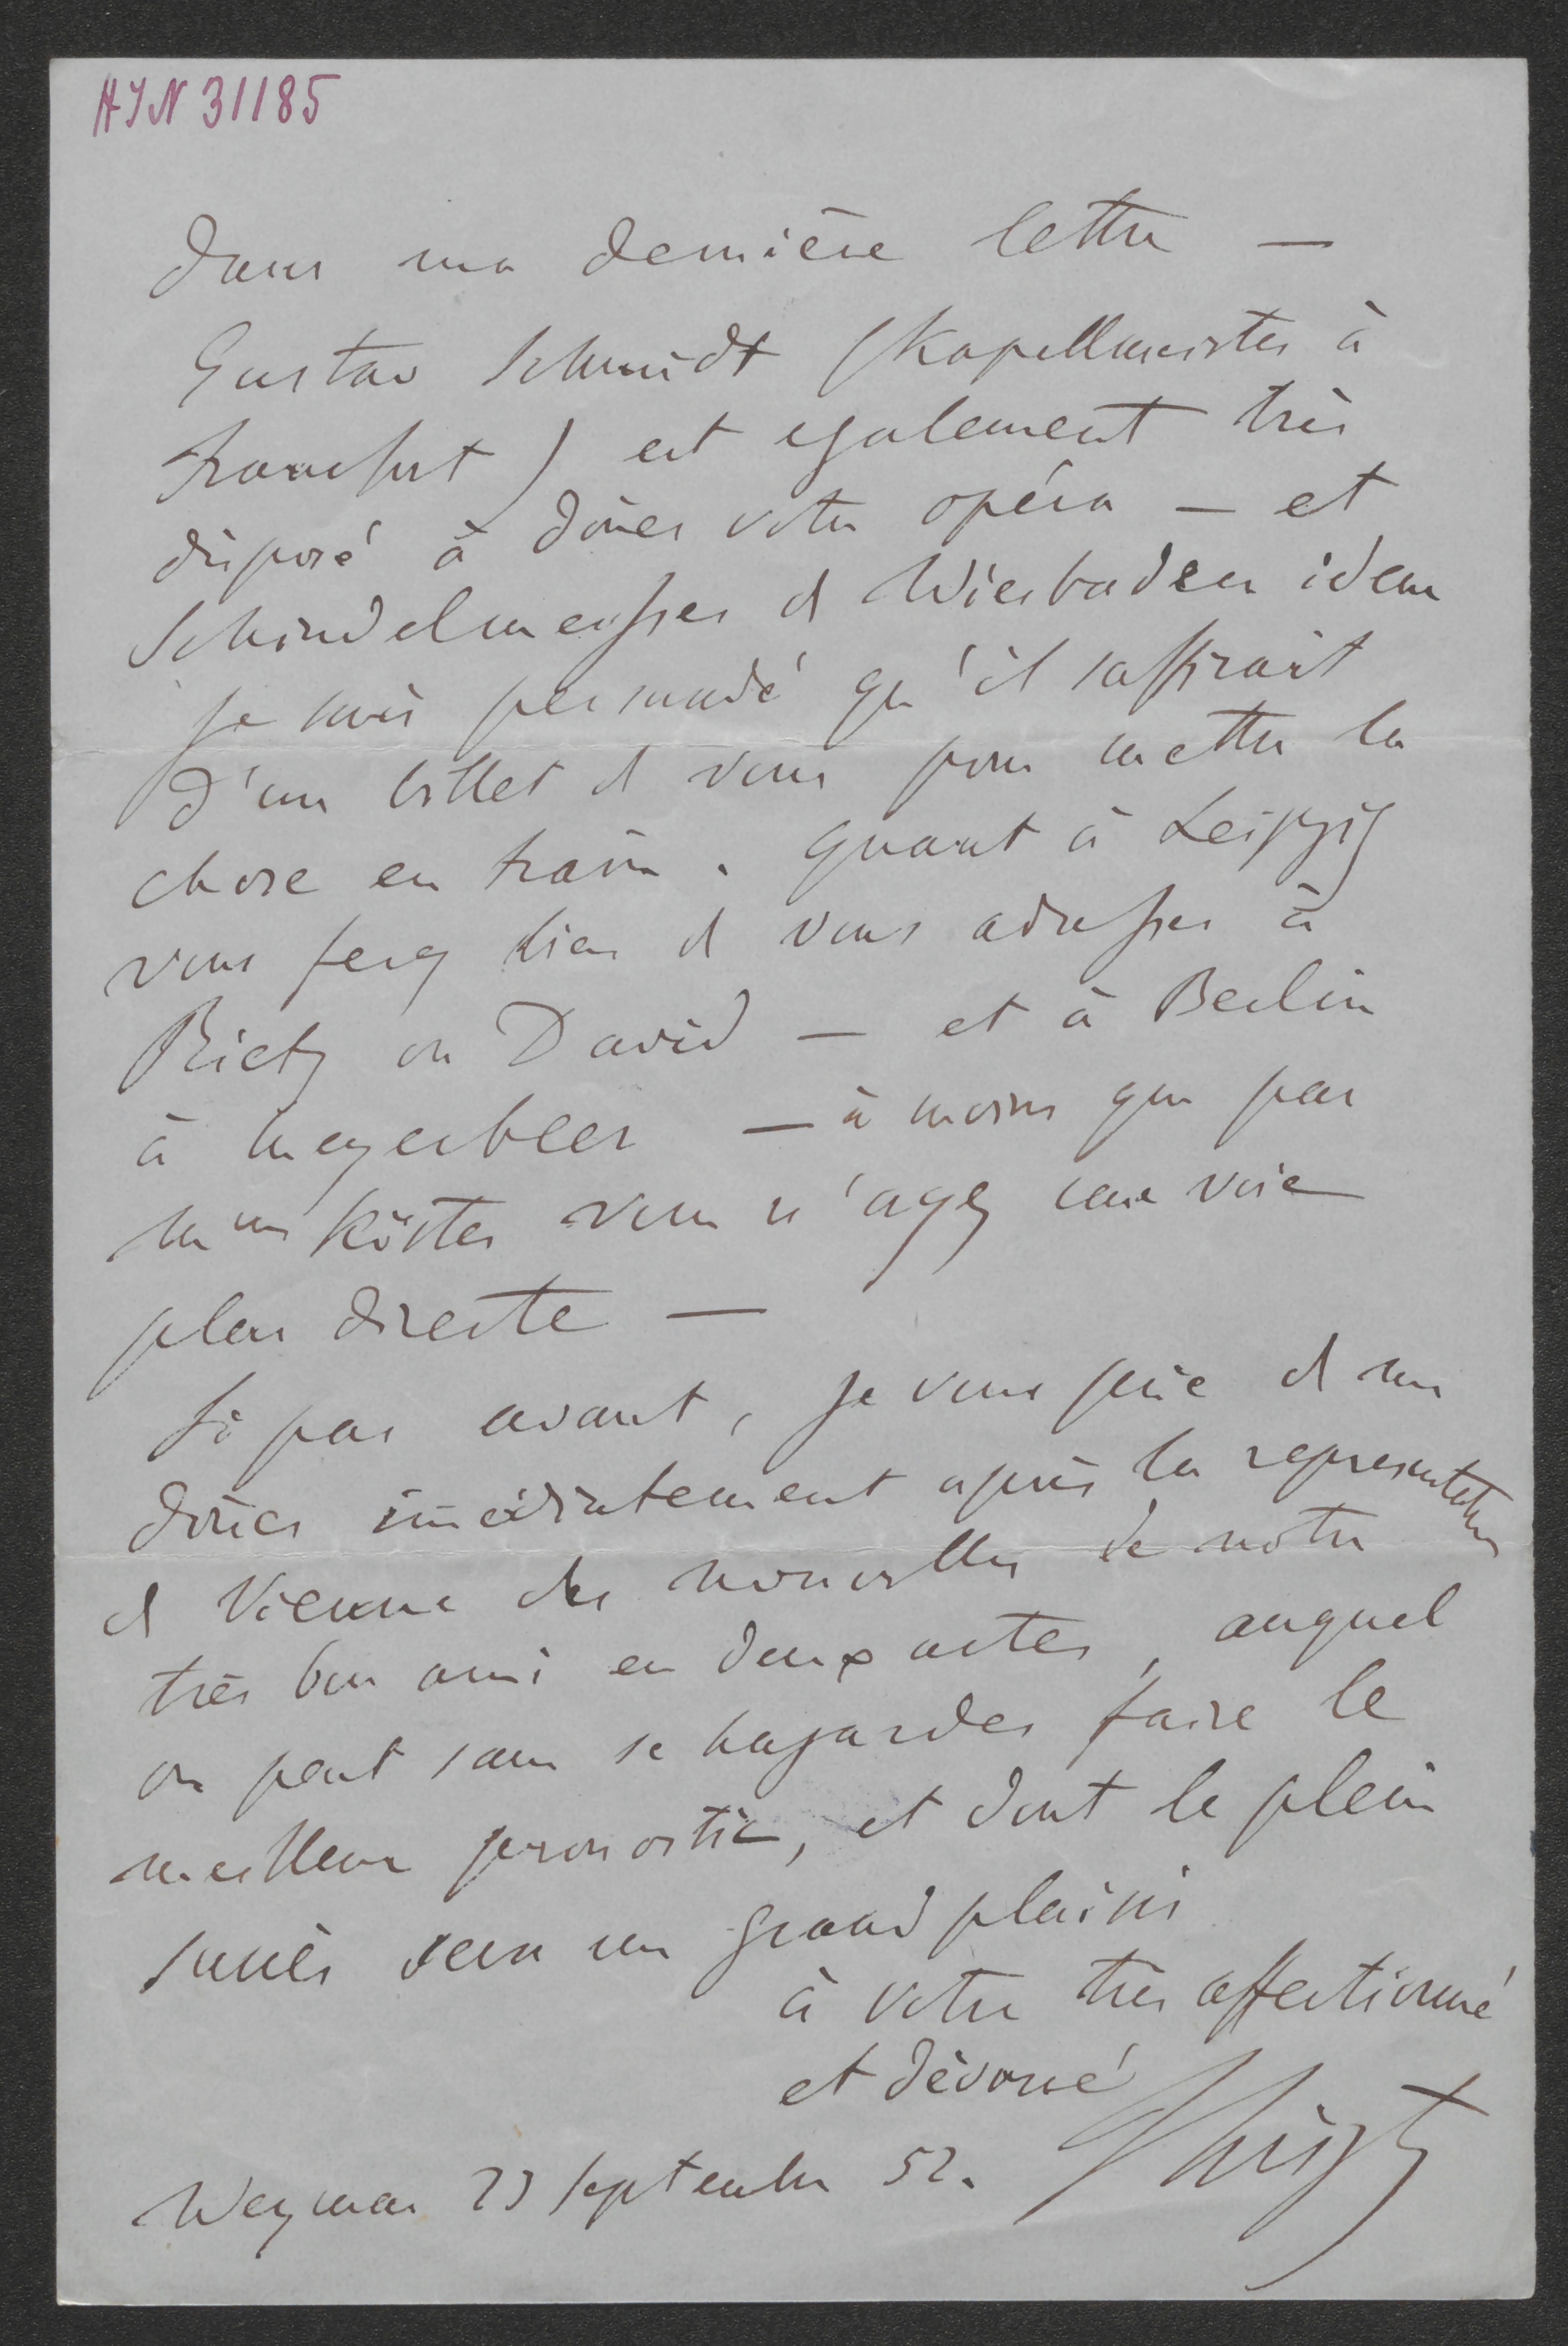 HJN 31185
dans ma dernière lettre —
Gustav Schmidt (Kapellmeister à
Francfurt) est egalement très
disposé à doñer votre opéra — et
Schindelmeisser de Wiesbaden idem
Je suis persuadé qu'il suffirait
d'un billet de vous pour mettre la
chose en train. Quant à Leipzig
vous ferez bien de vous adresser à
Rietz ou David — et à Berlin
à Meyerbeer — à moins que par
Mme Köster vous n'ayez une voie
plus directe —
Si pas avant, je vous prie de me
doñer im̃édiatement après la representation
de Vienne des nouvelles de notre
très bon ami en deux actes, auquel
on peut sans se hazarder faire le
meilleur pronostic, et dont le plein
succès sera un grand plaisir
à votre très affectionné
et dévoué
FLiszt
Weymar 23 Septembre 52.